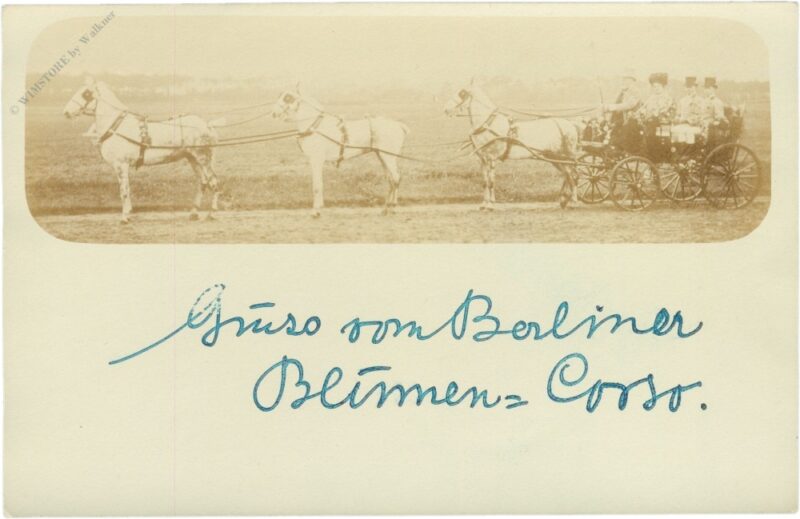 © WIMSTORE by Walkner
Gruss vom Berliner
Blumen=Corso.